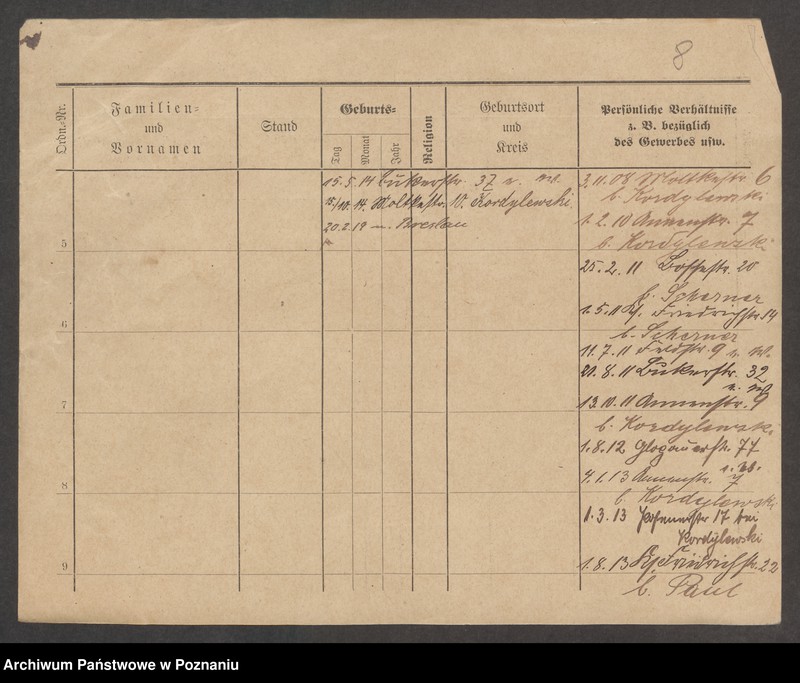 8
Ordn.-Nr.
Familien-
und
Vornamen
Stand
Geburts-
Tag
Monat
Jahr
Religion
Geburtsort
und
Kreis
Persönliche Verhältnisse
z. B. bezüglich
des Gewerbes usw.
15. 5. 14 Bukerstr. 37 v. W.
15/10. 14. Moltkestr. 10. Kordylewski
20.2.18 n. Breslau
3.11.08 Moltkestr. 6
b. Kordylewski
1. 2. 10 Annenstr. 7
b. Kordylewski
25. 2. 11 Bossestr. 20
b. Scherner
1. 5. 11 Friedrichstr. 14
b. Scherner
11. 7. 11 Feldstr. 9 v. W.
21. 8. 11 Bukerstr. 32
v. W.
13. 10. 11 Annenstr. 9
b. Kordylewski
1. 8. 12 Glogauerstr. 77
v. W.
4. 1. 13 Annenstr. 7
b. Kordylewski
1. 3. 13 Posenerstr 17 bei
Kordylewski
1. 8. 13 Friedrichstr. 22
b. Paul
5
6
7
8
9
Archiwum Państwowe w Poznaniu